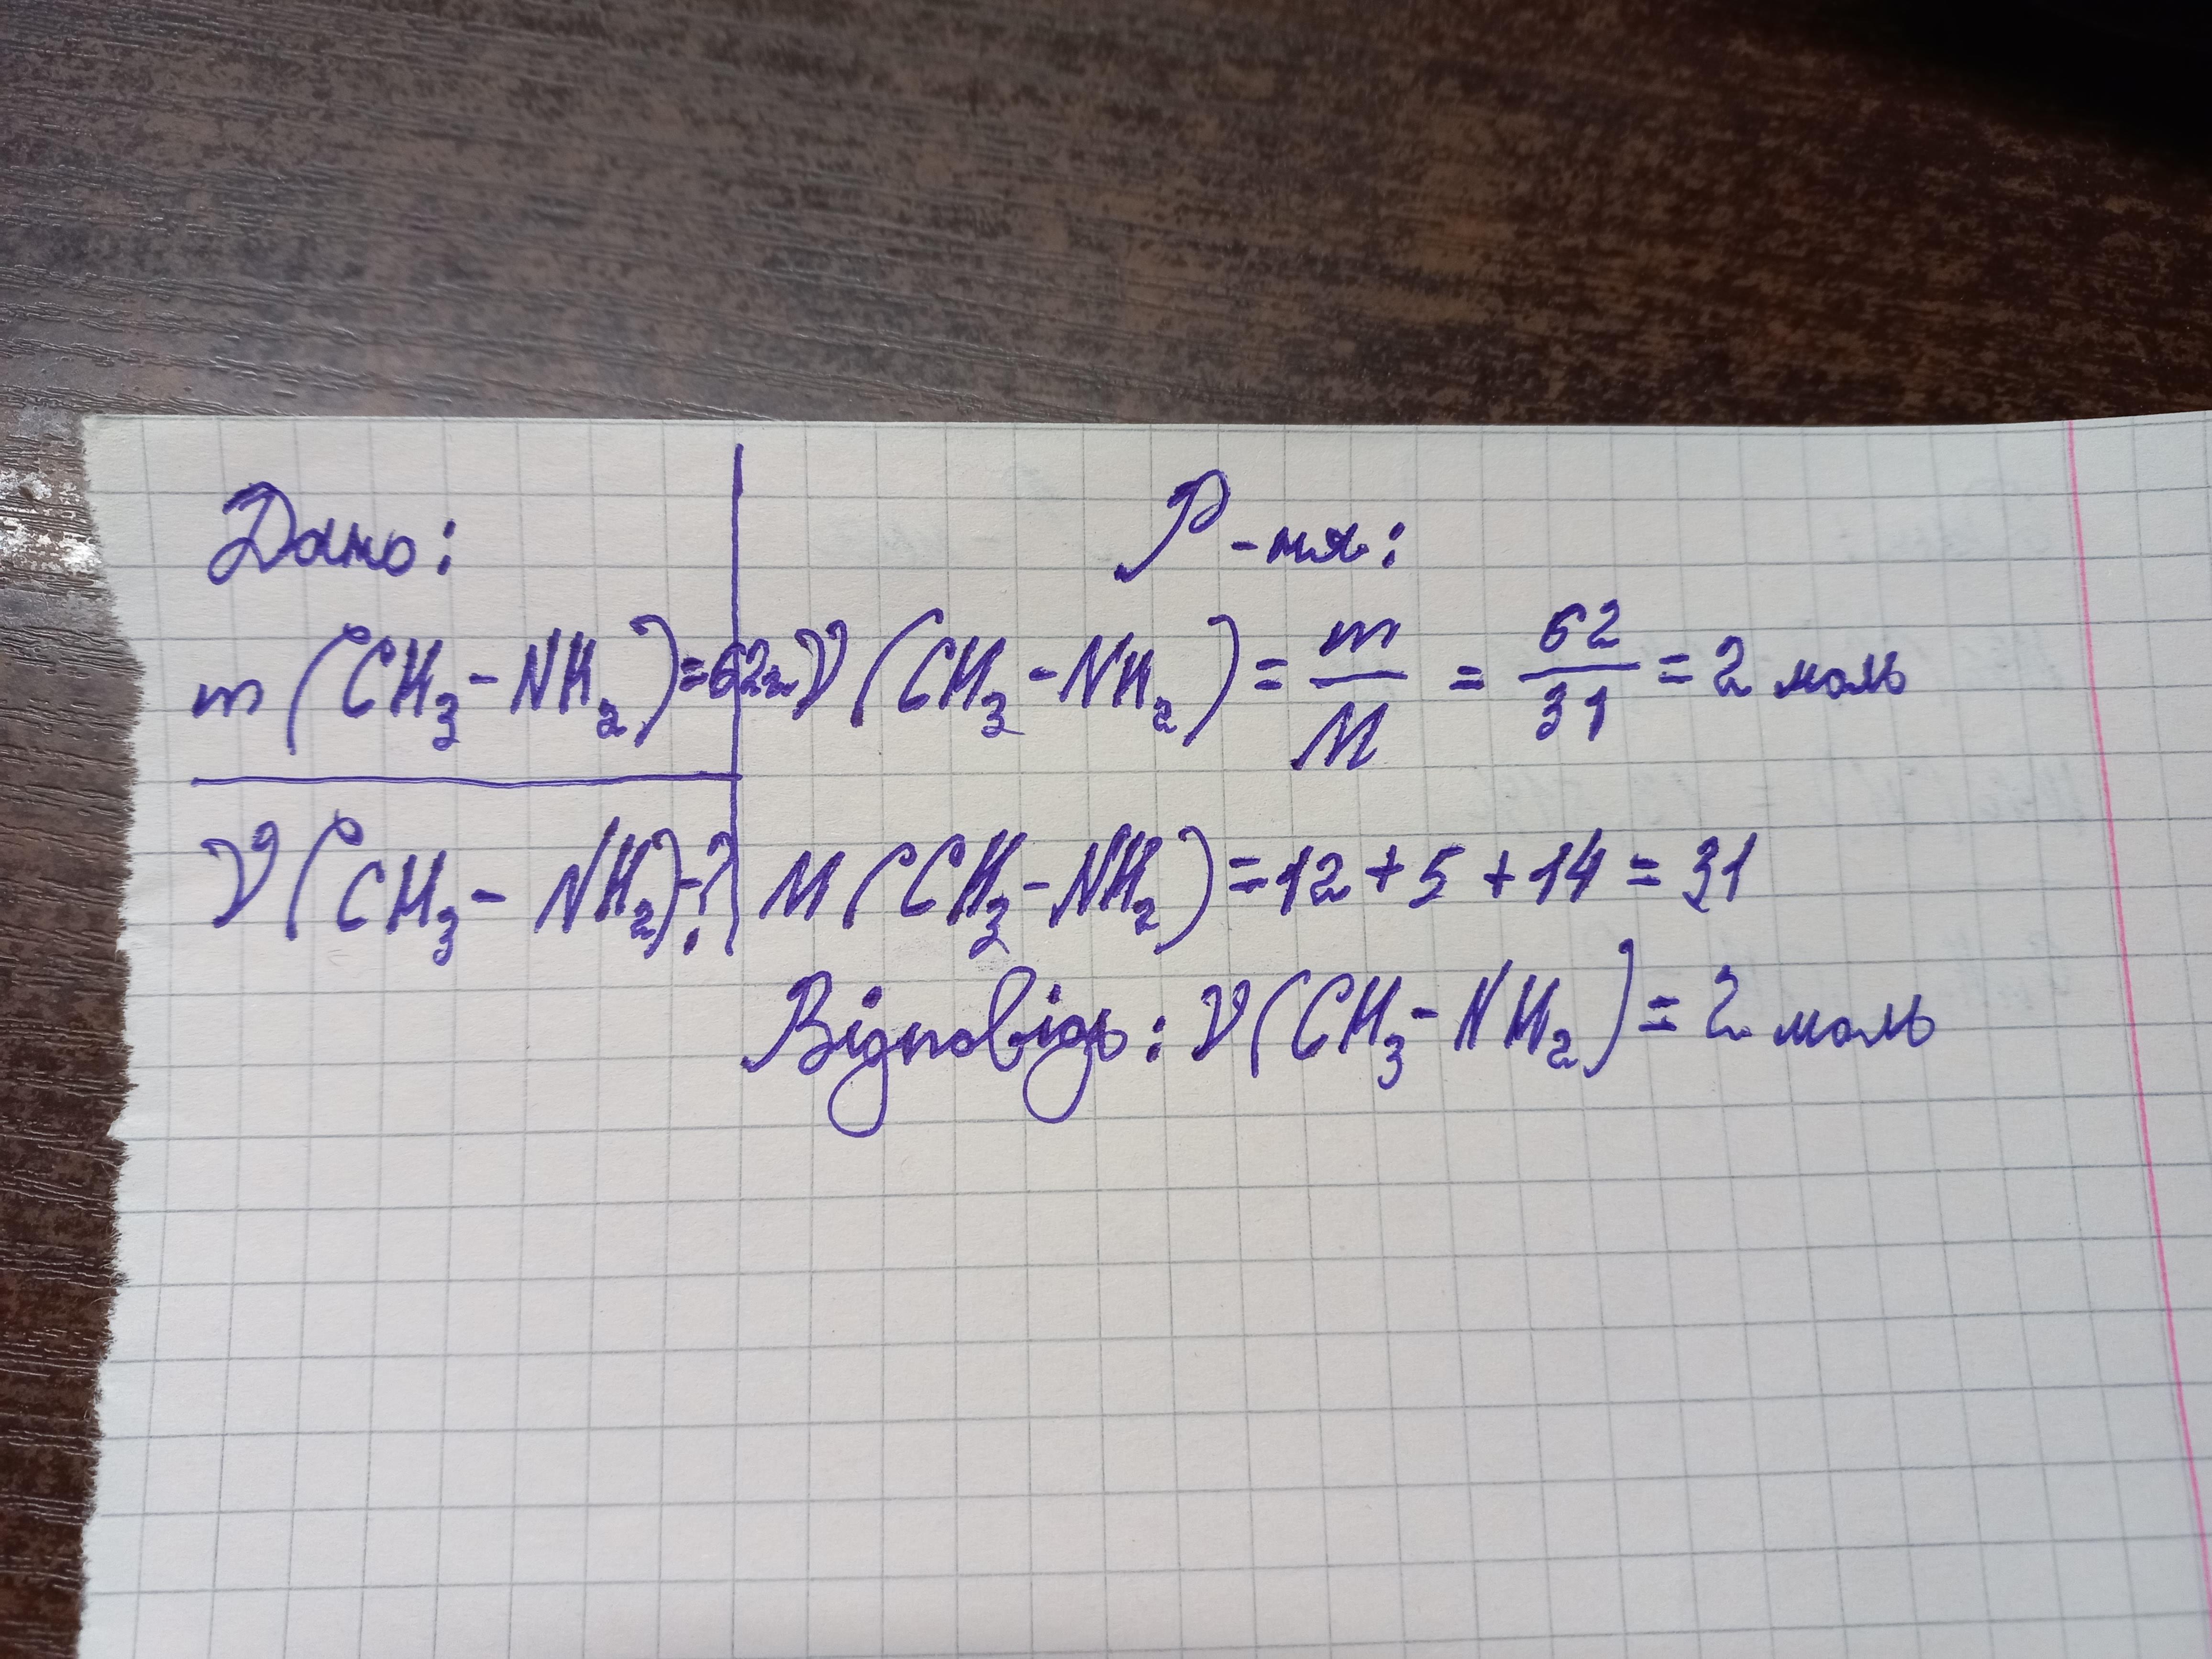 Дано:
m(CH₃-NH₂)=62г
ν(CH₃-NH₂)-?
Р-ня:
ν(CH₃-NH₂)= m/M = 62/31 = 2 моль
M(CH₃-NH₂)=12+5+14=31
Відповідь: ν(CH₃-NH₂)= 2 моль